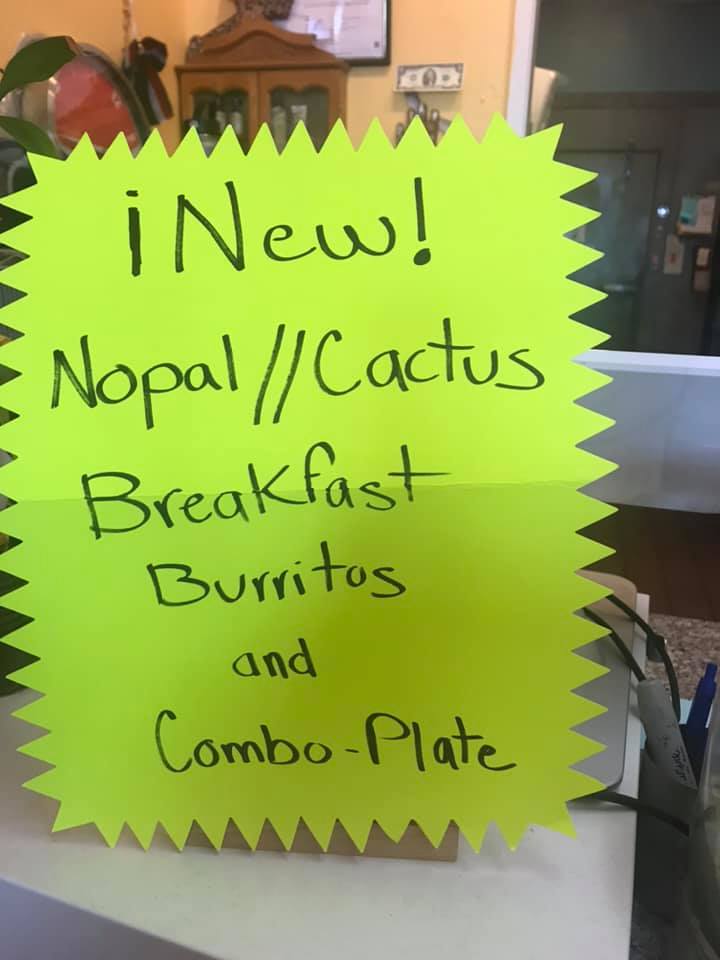 ¡New!
Nopal//Cactus
Breakfast
Burritos
and
Combo-Plate